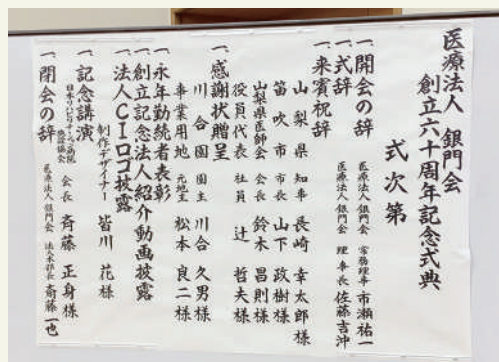 医療法人 銀門会
創立六十周年記念式典
式次第
一、開会の辞 医療法人銀門会 常務理事 市瀬祐一
一、式辞 医療法人銀門会 理事長 佐藤吉沖
一、来賓祝辞
山梨県 知事 長崎 幸太郎様
笛吹市 市長 山下 政樹様
山梨県医師会 会長 鈴木 昌則様
役員代表 社員 辻 哲夫様
一、感謝状贈呈
川合園 園主 川合 久男様
事業用地 元地主 松本 良二様
一、永年勤続者表彰
一、創立記念法人紹介動画披露
一、法人CIロゴ披露
制作デザイナー 皆川 花様
一、記念講演
日本リハビリテーション病院・施設協会 会長 斉藤 正身様
一、閉会の辞 医療法人銀門会 法人本部長 斎藤一也